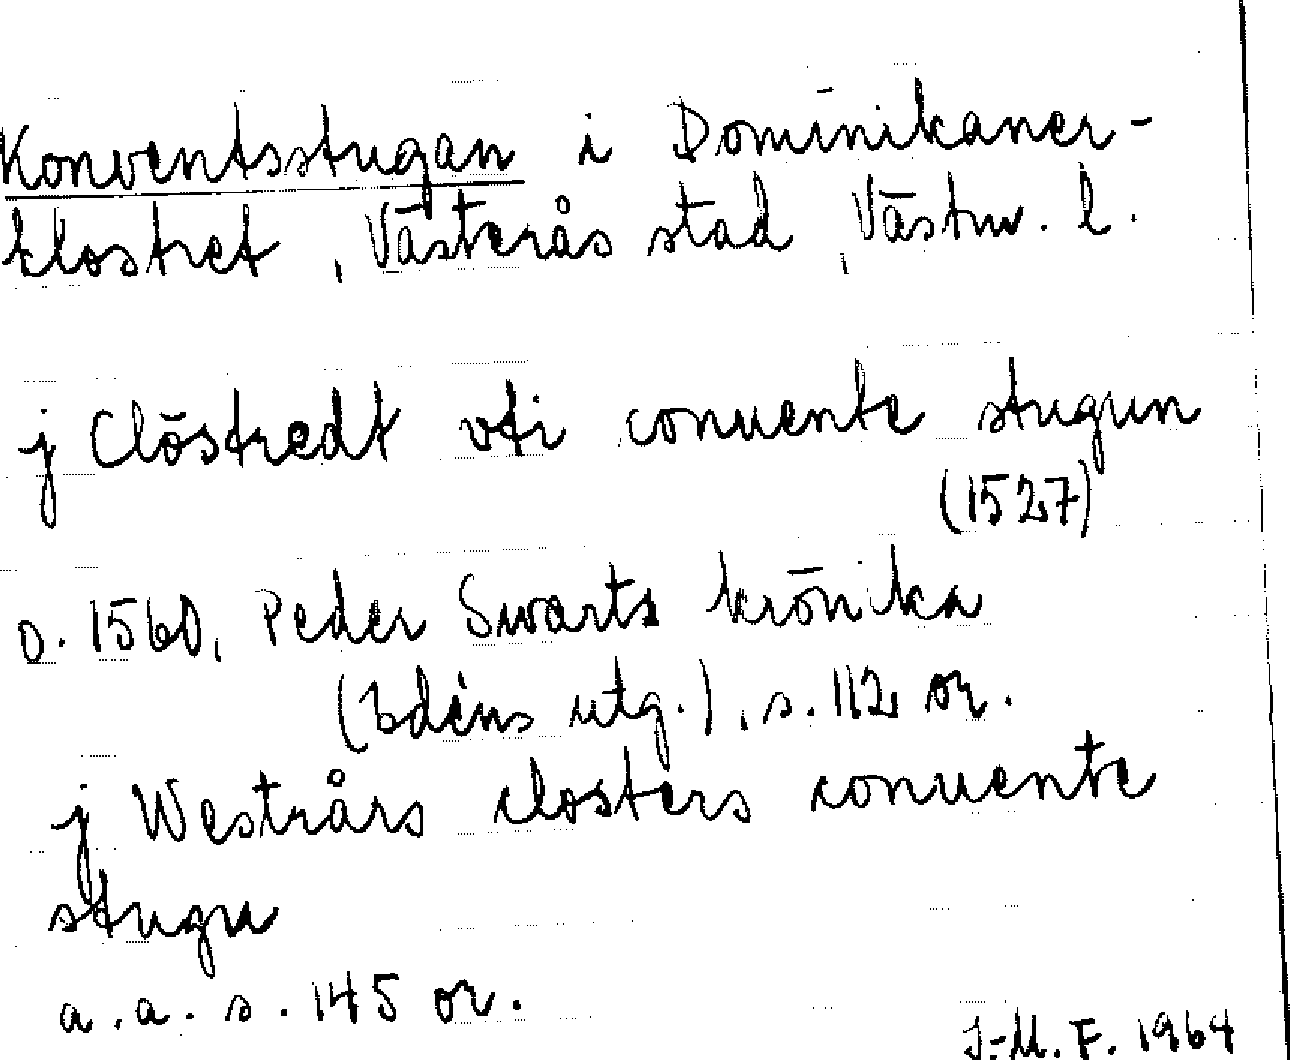 Konventsstugan i Dominikaner-
klostret, Västerås stad, Västm. l.
j Clöstredt vti conuente stugun
(1527)
o. 1560, Peder Swarts krönika
(Edéns utg.), s. 112 or.
j Westrårs closters conuente
stugu
a.a. s. 145 or.
J.-M. F. 1964